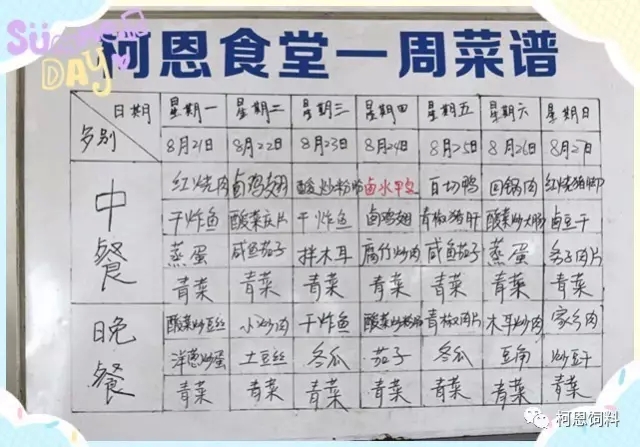 SUMMER DAY
柯恩食堂一周菜谱
日期 星期一 星期二 星期三 星期四 星期五 星期六 星期日
8月21日 8月22日 8月23日 8月24日 8月25日 8月26日 8月27
中餐
红烧肉 卤鸡翅 卤水 白切鸭 回锅肉 红烧猪脚
干炸鱼 酸菜 干炸鱼 卤鸡翅 青椒猪肝 酸菜炒大肠 卤豆干
蒸蛋 咸鱼茄子 拌木耳 腐竹炒肉 咸鱼茄子 蒸蛋 肉片
青菜 青菜 青菜 青菜 青菜 青菜 青菜
晚餐
酸菜炒豆丝 小炒肉 干炸鱼 青椒肉片 木耳炒肉
洋葱炒蛋 土豆丝 冬瓜 茄子 冬瓜 豆角 炒豆干
青菜 青菜 青菜 青菜 青菜 青菜 青菜
柯恩饲料